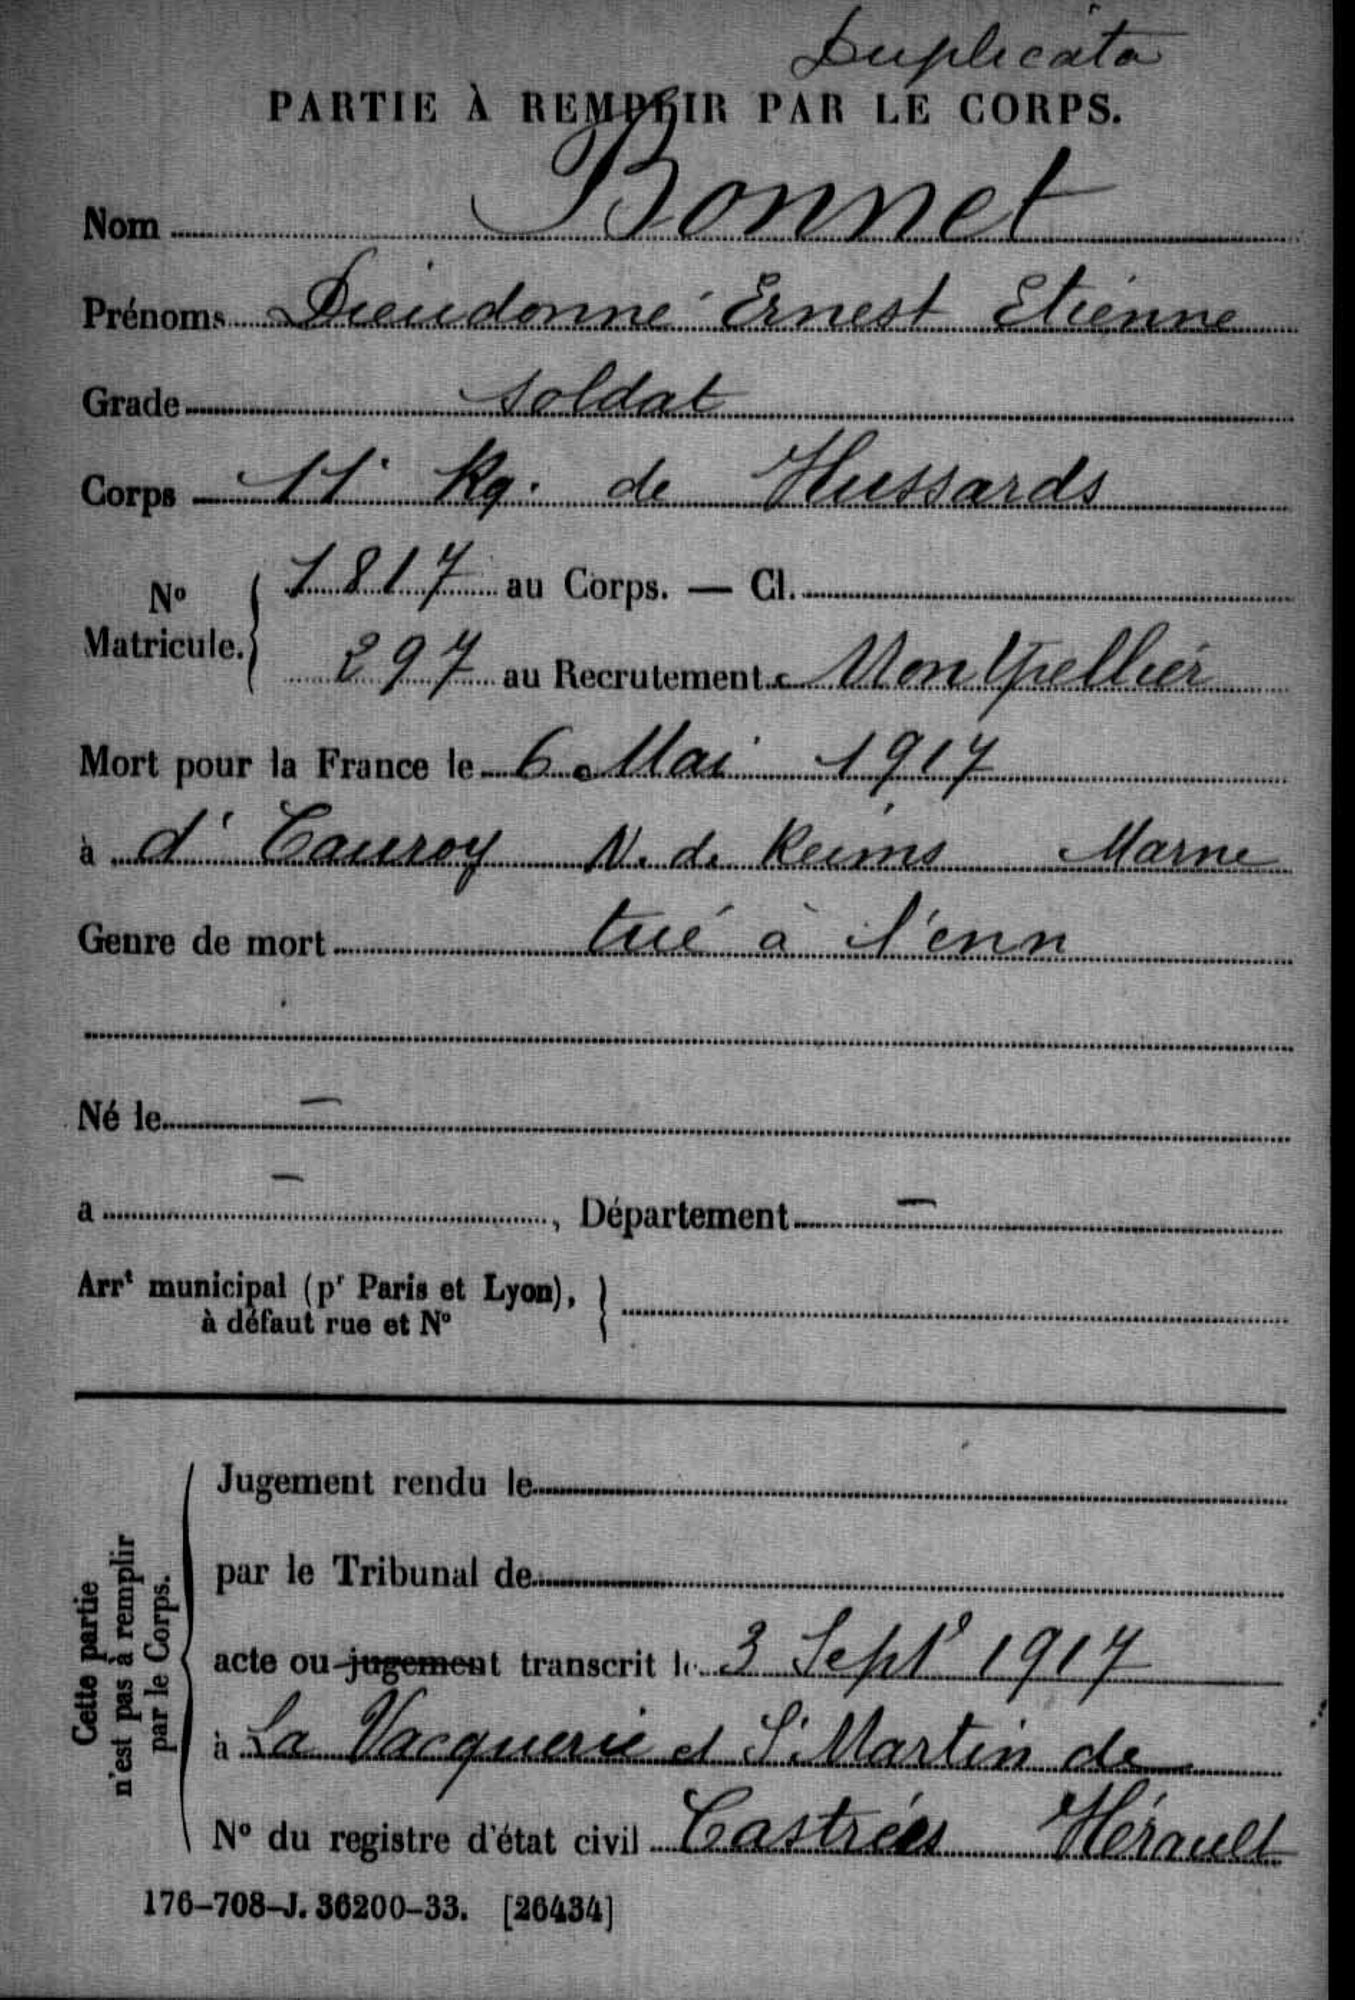 Duplicata
PARTIE À REMPLIR PAR LE CORPS.
Nom Bonnet
Prénoms Dieudonné Ernest Etienne
Grade soldat
Corps 11e Rg. de Hussards
No Matricule. 1817 au Corps. — Cl.
297 au Recrutement Montpellier
Mort pour la France le 6 Mai 1917
à d' Cauroy N. de Reims Marne
Genre de mort tué à l'enn
Né le –
a –, Département –
Arrt municipal (pr Paris et Lyon),
à défaut rue et No
Cette partie
n'est pas à remplir
par le Corps.
Jugement rendu le
par le Tribunal de
acte ou jugement transcrit le 3 Septe 1917
à La Vacquerie et St Martin de
No du registre d'état civil Castries Hérault
176–708–J. 36200–33. [26434]